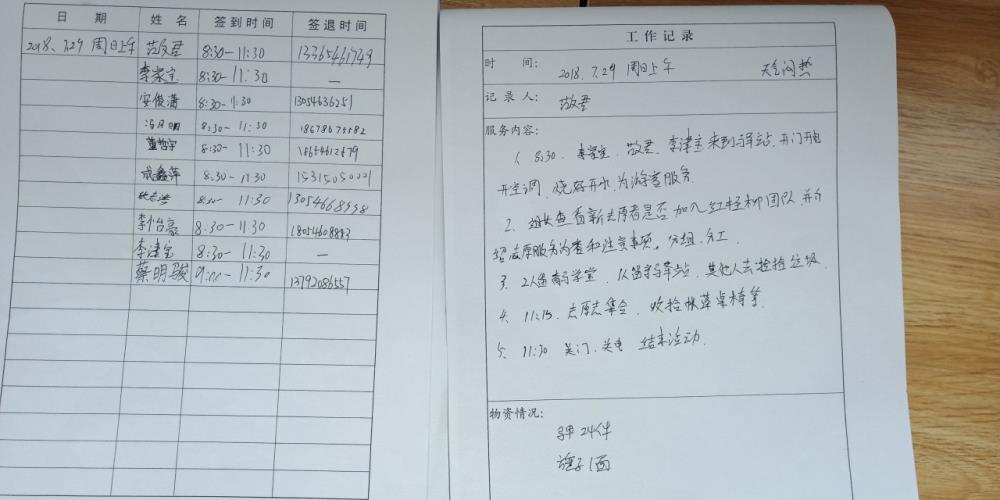 日 期 姓 名 签到时间 签退时间
2018、7.29 周日上午 敬君 8:30-11:30 13365461749
李家宝 8:30-11:30 —
安俊潇 8:30-11:30 13054636251
冯月明 8:30-11:30
董哲宇 8:30-11:30
成鑫萍 8:30-11:30 15315050001
11:30 13054668998
李怡豪 8:30-11:30
李津宝 8:30-11:30 —
蔡明骏 9:00-11:30 13792086557
工作记录
时 间: 2018.7.29 周日上午 天气闷热
记录人: 敬君
服务内容:
1. 8:30. 李家宝. 敬君. 李津宝来到驿站.开门开电
开空调.烧好开水,为游客服务.
2. 组长查看新志愿者是否加入红柽柳团队,并介
绍志愿服务内容和注意事项。分组.分工.
3. 2人留守学堂. 留守驿站.其他人去捡拾垃圾.
4. 11:15.志愿者集合.收拾帐篷桌椅等.
5. 11:30 关门.关电 结束活动.
物资情况:
马甲24件
旗子1面